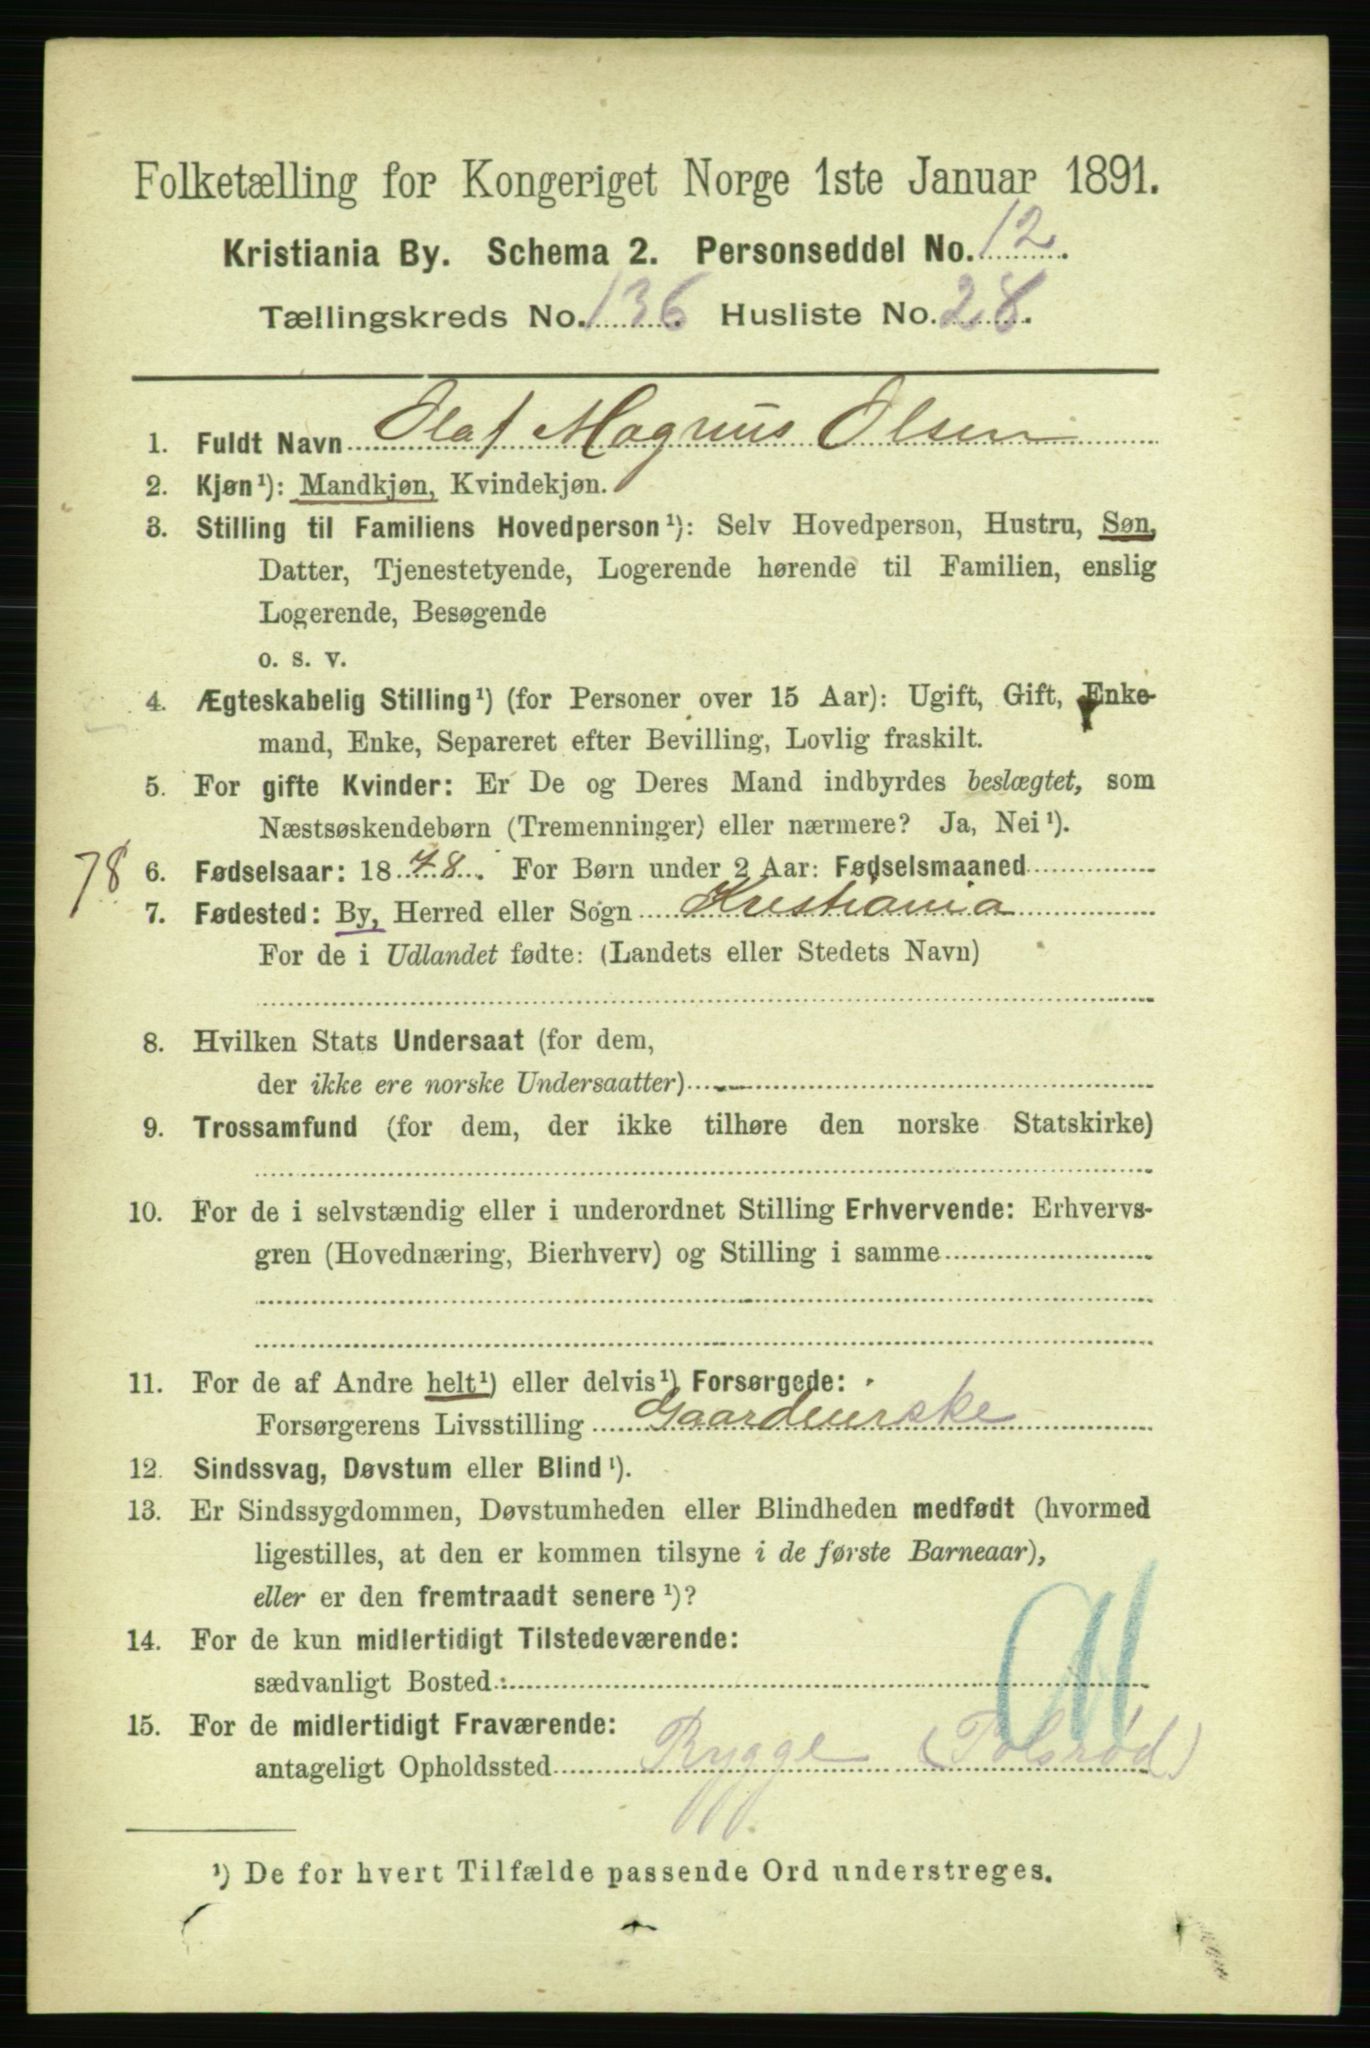 Folketælling for Kongeriget Norge 1ste Januar 1891.
Kristiania By. Schema 2. Personseddel No. 12.
Tællingskreds No. 136 Husliste No. 28.
1. Fuldt Navn Olaf Magnus Olsen
2. Kjøn¹): Mandkjøn, Kvindekjøn.
3. Stilling til Familiens Hovedperson¹): Selv Hovedperson, Hustru, Søn,
Datter, Tjenestetyende, Logerende hørende til Familien, enslig
Logerende, Besøgende
o. s. v.
4. Ægteskabelig Stilling¹) (for Personer over 15 Aar): Ugift, Gift, Enke-
mand, Enke, Separeret efter Bevilling, Lovlig fraskilt.
5. For gifte Kvinder: Er De og Deres Mand indbyrdes beslægtet, som
Næstsøskendebørn (Tremenninger) eller nærmere? Ja, Nei¹).
78 6. Fødselsaar: 1878. For Børn under 2 Aar: Fødselsmaaned
7. Fødested: By, Herred eller Sogn Kristiania
For de i Udlandet fødte: (Landets eller Stedets Navn)
8. Hvilken Stats Undersaat (for dem,
der ikke ere norske Undersaatter)
9. Trossamfund (for dem, der ikke tilhøre den norske Statskirke)
10. For de i selvstændig eller i underordnet Stilling Erhvervende: Erhvervs-
gren (Hovednæring, Bierhverv) og Stilling i samme
11. For de af Andre helt¹) eller delvis¹) Forsørgede:
Forsørgerens Livsstilling Gaardeierske
12. Sindssvag, Døvstum eller Blind¹).
13. Er Sindssygdommen, Døvstumheden eller Blindheden medfødt (hvormed
ligestilles, at den er kommen tilsyne i de første Barneaar),
eller er den fremtraadt senere¹)?
14. For de kun midlertidigt Tilstedeværende:
sædvanligt Bosted:
15. For de midlertidigt Fraværende:
antageligt Opholdssted Rygge (Tolsrød)
¹) De for hvert Tilfælde passende Ord understreges.